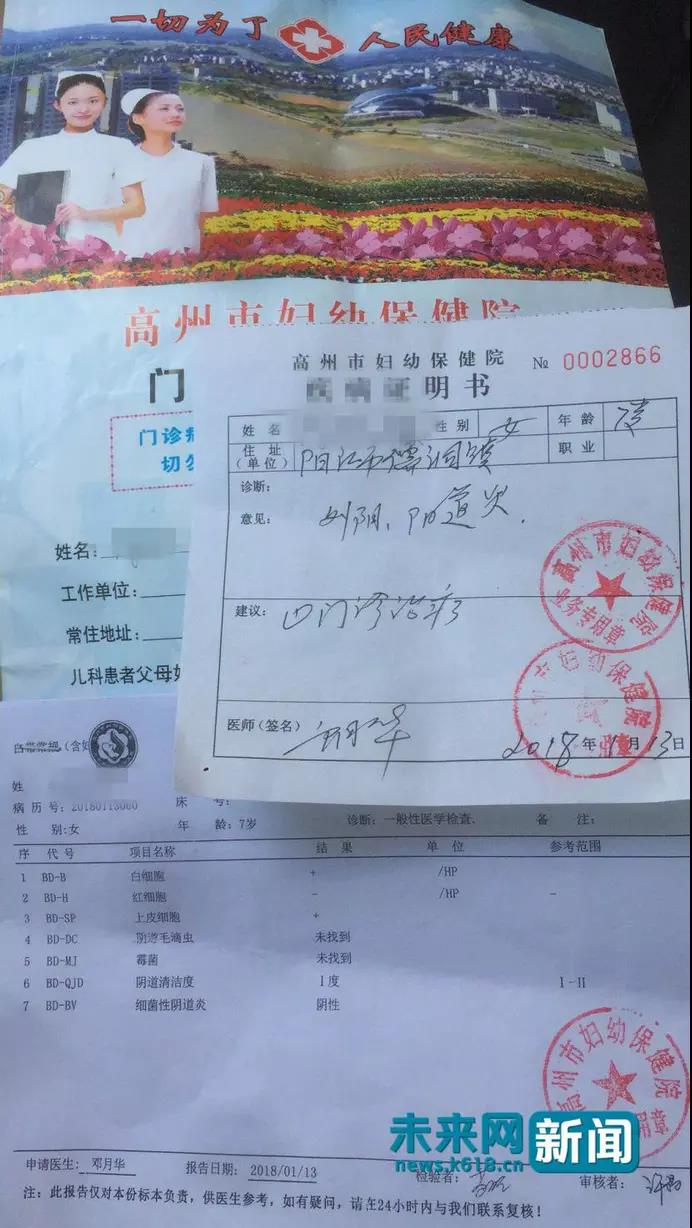 一切为了 人民健康
高州市妇幼保健院
门
门诊病
切勿
姓名:
工作单位:
常住地址:
儿科患者父母姓
高州市妇幼保健院
№ 0002866
疾病证明书
姓名 性别 女 年龄
住址(单位) 阳江市儒洞镇 职业
诊断:
意见: 外阴、阴道炎.
建议: 门诊治疗
高州市妇幼保健院
业务专用章
医师(签名)
2018年1月13日
白带常规(含
姓
病历号: 20180113060 床号:
性别:女 年龄:7岁 诊断: 一般性医学检查. 备注:
序 代号 项目名称 结果 单位 参考范围
1 BD-B 白细胞 + /HP
2 BD-H 红细胞 - /HP -
3 BD-SP 上皮细胞 +
4 BD-DC 阴道毛滴虫 未找到
5 BD-MJ 霉菌 未找到
6 BD-QJD 阴道清洁度 I度 I-II
7 BD-BV 细菌性阴道炎 阴性
高州市妇幼保健院
未来网 新闻
news.k618.cn
申请医生: 邓月华 报告日期: 2018/01/13 检验者: 审核者:
注: 此报告仅对本份标本负责, 供医生参考, 如有疑问, 请在24小时内与我们联系复核!